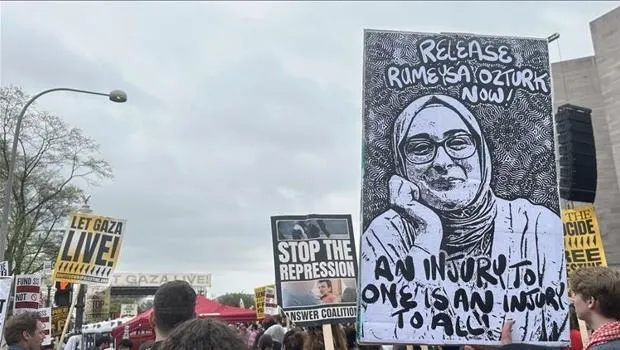 RELEASE
RUMEYSA OZTURK
NOW!
AN INJURY TO
ONE IS AN INJURY
TO ALL!
LET GAZA
LIVE!
STOP THE
REPRESSION
ANSWER COALITION
LET GAZA LIVE!
FUND
NOT
THE
FREE